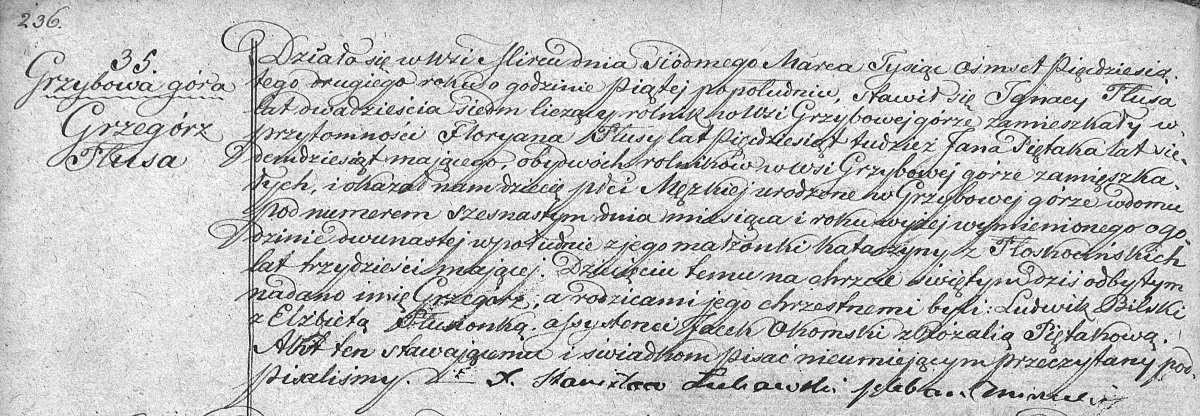 236.
35.
Grzybowa góra
Grzegórz
Tłusa
Działo się w Wsi Mircu dnia Siódmego Marca Tysiąc Osmset Pięćdziesią-
tego drugiego roku o godzinie Piątej popołudniu, stawił się Ignacy Tłusa
lat dwadzieścia siedm liczący rolnik w Wsi Grzybowej górze zamieszkały w
przytomności Floryana Tłusy lat Pięćdziesiąt tudzież Jana Piętaka lat sie-
demdziesiąt mającego, obydwóch rolników w wsi Grzybowej górze zamieszka-
łych, i okazał nam dziecię płci Męzkiej urodzone w Grzybowej górze w domu
pod numerem szesnastym dnia miesiąca i roku wyżej wymienionego o go-
dzinie dwunastej w południe z jego małżonki Katarzyny z Płoskocińskich
lat trzydzieści mającej. Dziecięciu temu na chrzcie świętym dziś odbytym
nadano imię Grzegórz, a rodzicami jego chrzestnemi byli: Ludwik Bilski
z Elżbietą assystenci Jacek Okomski z Rozalią Piętakową.
Akt ten stawającemu i świadkom pisać nieumiejącym przeczytany pod-
pisaliśmy. X. Stanisław pleban